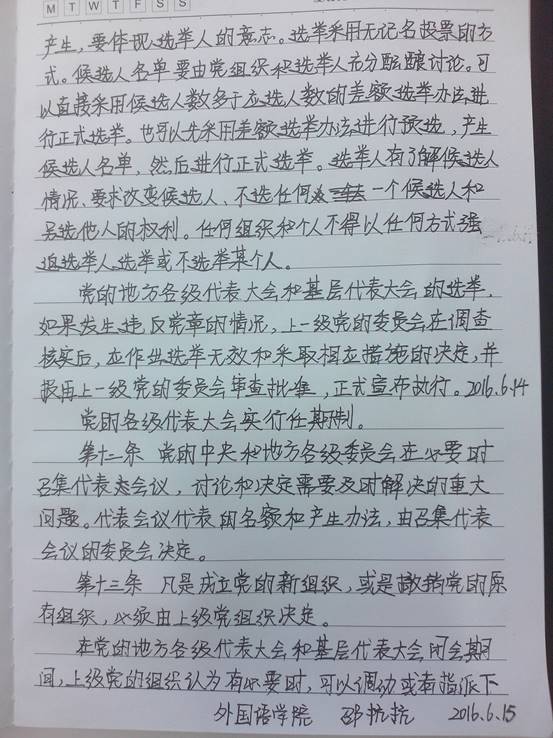 M T W T F S S
产生，要体现选举人的意志。选举采用无记名投票的方
式。候选人名单要由党组织和选举人充分酝酿讨论。可
以直接采用候选人数多于应选人数的差额选举办法进
行正式选举。也可以先采用差额选举办法进行预选，产生
候选人名单，然后进行正式选举。选举人有了解候选人
情况、要求改变候选人、不选任何一个候选人和
另选他人的权利。任何组织和个人不得以任何方式强
迫选举人选举或不选举某个人。
党的地方各级代表大会和基层代表大会的选举，
如果发生违反党章的情况，上一级党的委员会在调查
核实后，应作出选举无效和采取相应措施的决定，并
报再上一级党的委员会审查批准，正式宣布执行。2016.6.14
党的各级代表大会实行任期制。
第十二条 党的中央和地方各级委员会在必要时
召集代表会议，讨论和决定需要及时解决的重大
问题。代表会议代表的名额和产生办法，由召集代表
会议的委员会决定。
第十三条 凡是成立党的新组织，或是撤销党的原
有组织，必须由上级党组织决定。
在党的地方各级代表大会和基层代表大会闭会期
间，上级党的组织认为有必要时，可以调动或者指派下
外国语学院 邵抗抗 2016.6.15